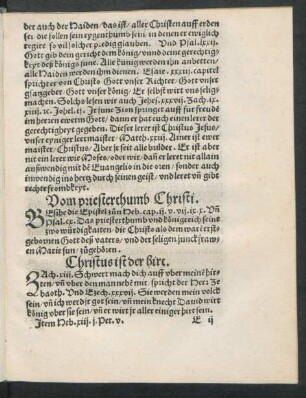 der auch der Haiden/das ist/aller Christen auff erden
sei. die sollen sein eygenthumb sein. in denen er ewiglich
regirt so vil solcher predig glauben. Und Psal.lxxij.
Gott gib dem gericht dem könig/ vnd deine gerechtig⸗
keyt deß königs sune. Alle künig werden ihn anbetten/
alle Haiden werden ihm dienen. Esaie. xxxiij. capitel
spricht er von Christo Gott vnser Richter/ Gott vnser
gsatzgeber Gott vnser könig/ Er selbst wirt vns selig
machen. Solchs lesen wir auch Jehez.xxxvij. Zach.ix.
xiiij.ic Johel.ij. Ir sune Zion springet auff für freude
im herren ewern Gott/ dann er hat euch einen lerer der
gerechtigkeyt gegeben. Dieser lerer ist Christus Jesus/
vnser eyniger lermaister/ Math.xxiij. Ainer ist ewer
maister Christus/ Aber jr seit alle bruder. Er ist aber nit
ein lerer wie Moses/oder wir. dañ er leret nit allain
außwendig mit dē Euangelio in die oren/ sonder auch
inwendig ins hertz durch seinen geist/ vnd leret vñ gibt
rechte frombkeyt.
Vom priesterthumb Christi.
BEsihe die Epistel zun Heb. cap.ij. v. vij. ix. x. Vñ
Psal.cx. Das priesterthumb vnd königreich seind
zwo würdigkaiten/ die Christo als dem war erst⸗
gebornen Gott deß vaters/ vnd der seligen junckfraw⸗
en Marie sun/ zugehören.
Christus ist der hirt.
ZAch.xiii. Schwert mach dich auff vber mein hir⸗
ten/ vñ vber den man nehē mir/ spricht der Herr Ze
baoth. Und Ezech.xxxvij. Sie werden mein volck
sein/ vñ ich werd jr got sein/ vñ mein knecht Dauid wirt
könig vber sie sein/ vñ er wirt jr aller einiger hirt sein.
Item Heb.xiij. j.Pet.v.
E ij